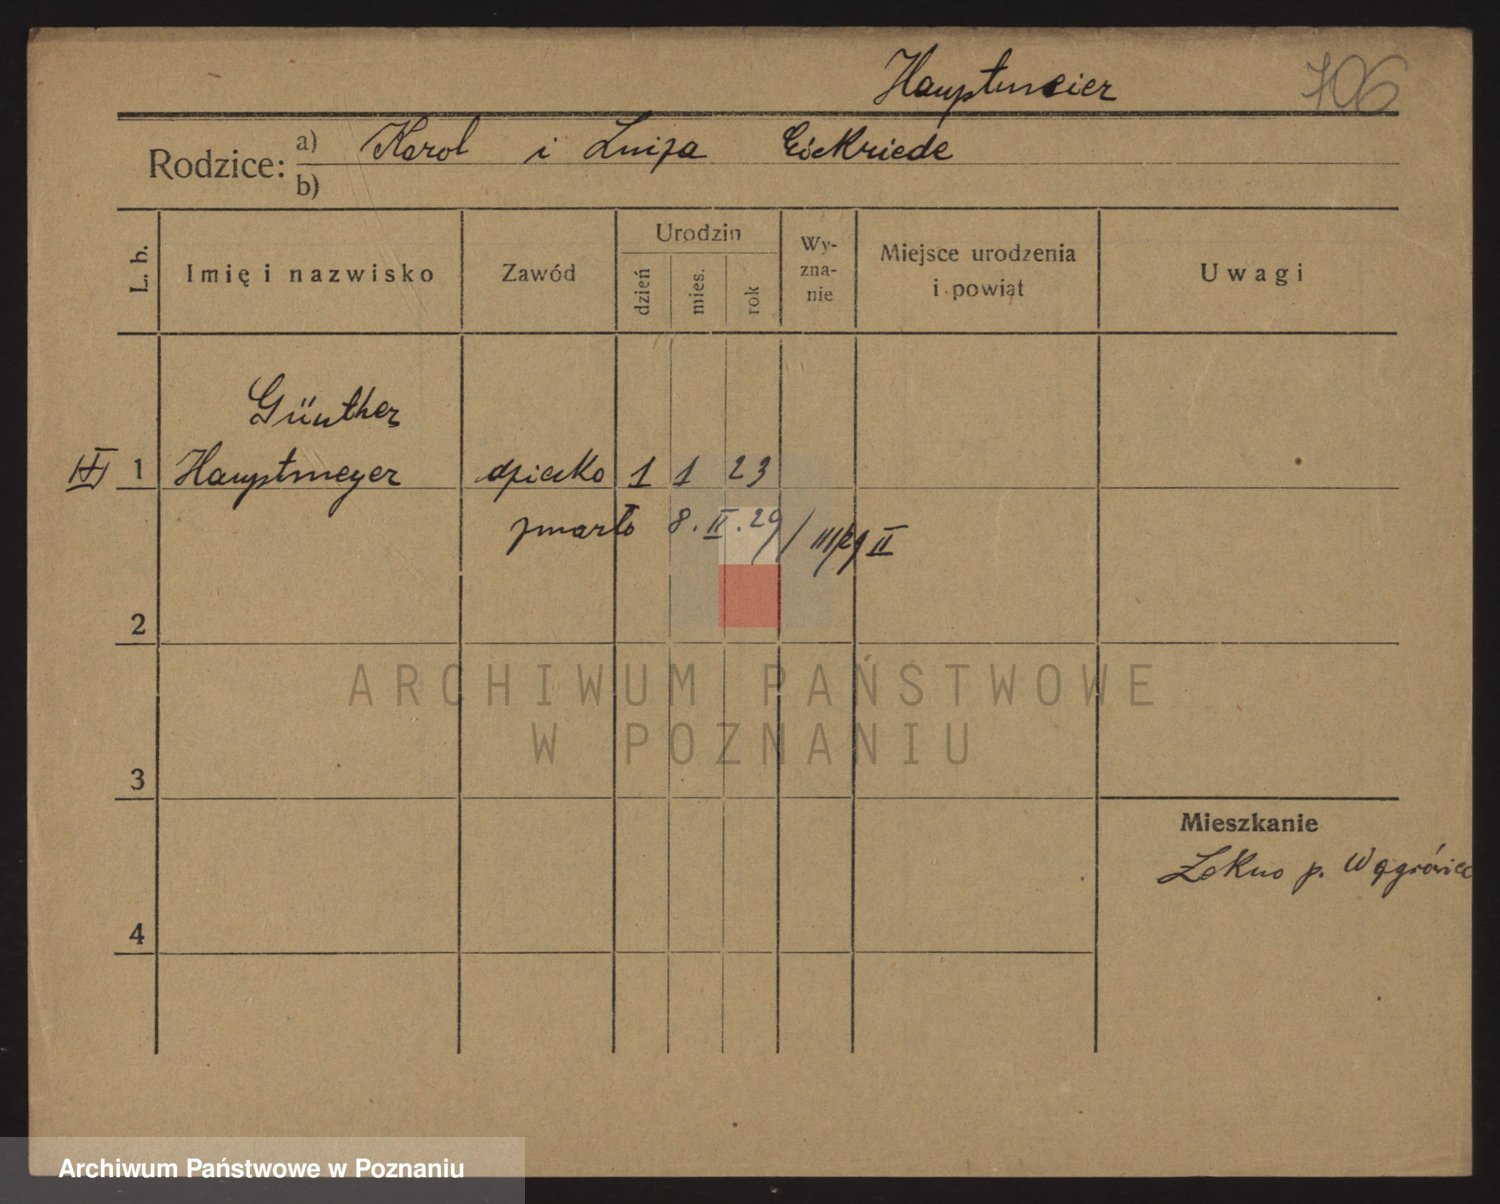 Hauptmeier 706
Rodzice: a) Karol i Luiza
b)
L. b.
Imię i nazwisko
Zawód
Urodzin
dzień
mies.
rok
Wy-
zna-
nie
Miejsce urodzenia
i powiat
Uwagi
Günther
1 Hauptmeyer dziecko 1 1 23
zmarło 8. II. 29 / III/29 II
2
ARCHIWUM PAŃSTWOWE
W POZNANIU
3
Mieszkanie
Łekno p. Wągrówiec
4
Archiwum Państwowe w Poznaniu